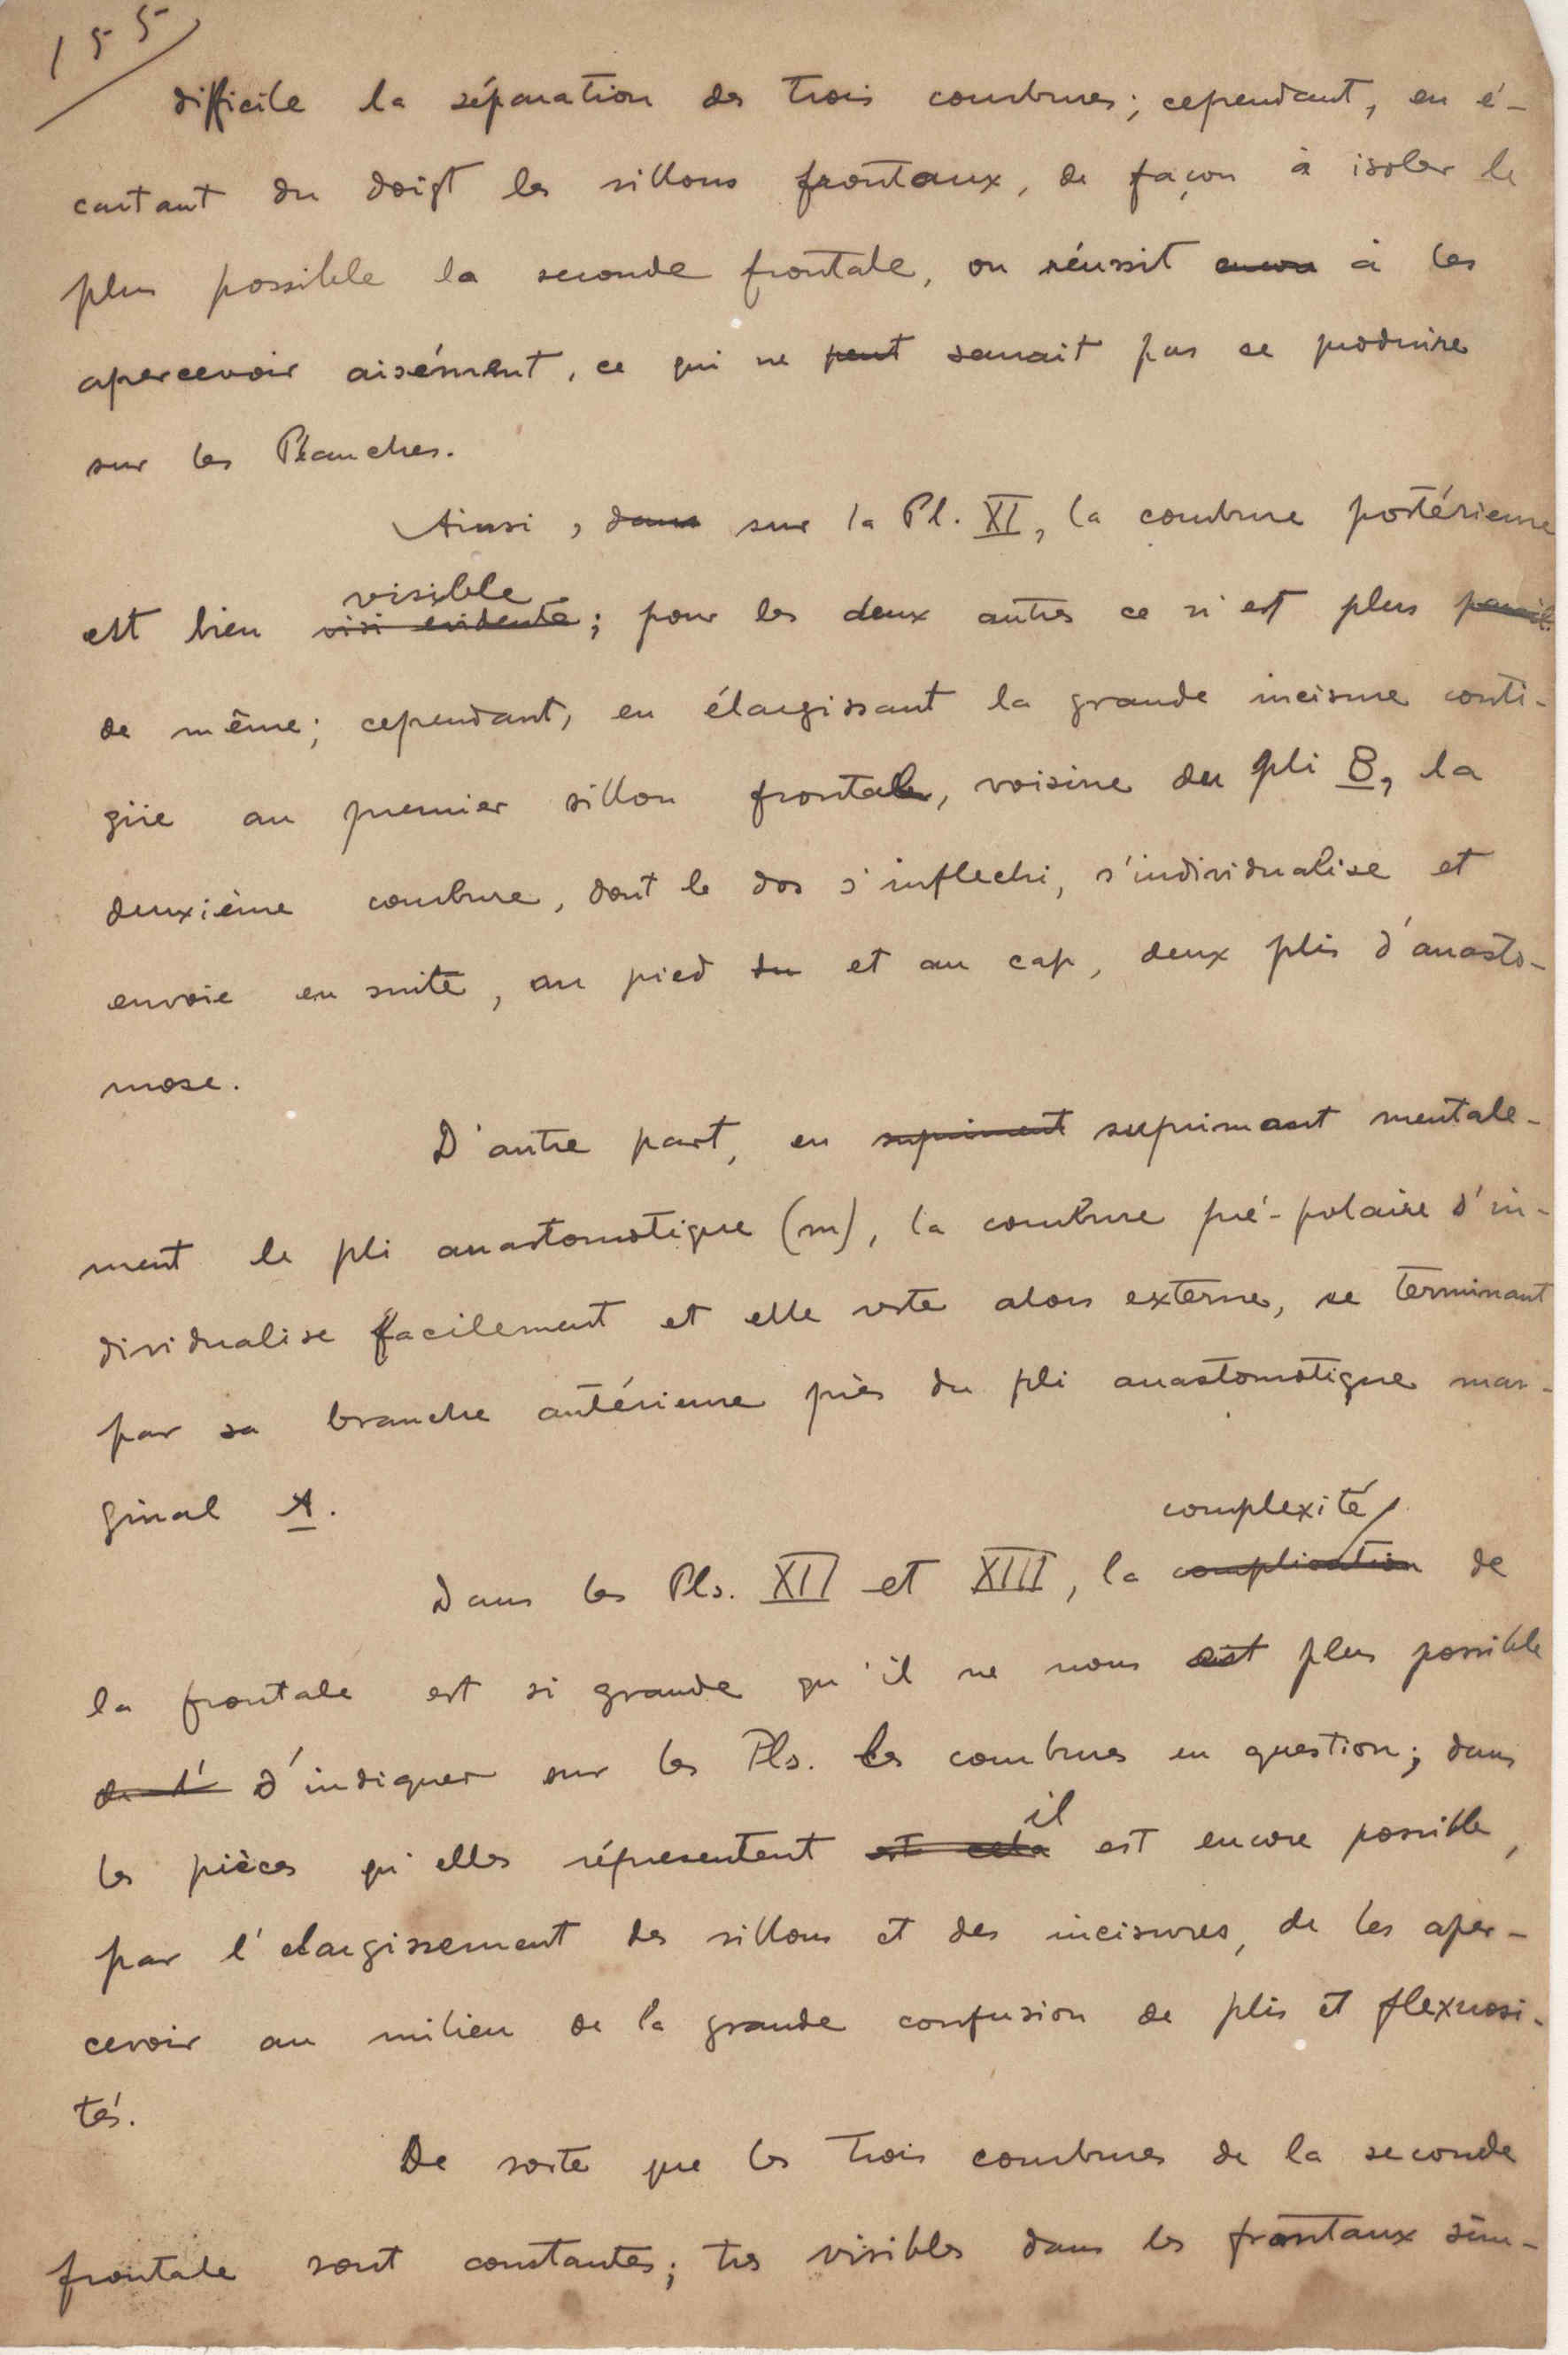 155
difficile la séparation des trois courbures; cependant, en é-
cartant du doigt les sillons frontaux, de façon à isoler le
plus possible la seconde frontale, on réussit encore à les
apercevoir aisément, ce qui ne peut saurait pas se produire
sur les Planches.
Ainsi, dans sur la Pl. XI, la courbure postérieure
visible
est bien visi evidente; pour les deux autres ce n'est plus pareil
de même; cependant, en élargissant la grande incisure conti-
güe au premier sillon frontale, voisine du pli B, la
deuxième courbure, dont le dos s'inflechi, s'individualise et
envoie en suite, au pied du et au cap, deux plis d'anasto-
mose.
D'autre part, en supriment suprimant mentale-
ment le pli anastomotique (m), la courbure pré-polaire s'in-
dividualise facilement et elle reste alors externe, se terminant
par sa branche antérieure près du pli anastomotique mar-
ginal A.
complexité
Dans les Pls. XII et XIII, la complication de
la frontale est si grande qu'il ne nous est plus possible
de l' d'indiquer sur les Pls. les courbures en question; dans
il
les pièces qu'elles répresentent est cela est encore possible,
par l'elargissement des sillons et des incisures, de les aper-
cevoir au milieu de la grande confusion de plis et flexuosi-
tés.
De sorte que les trois courbures de la seconde
frontale sont constantes; tres visibles dans les frontaux sim-